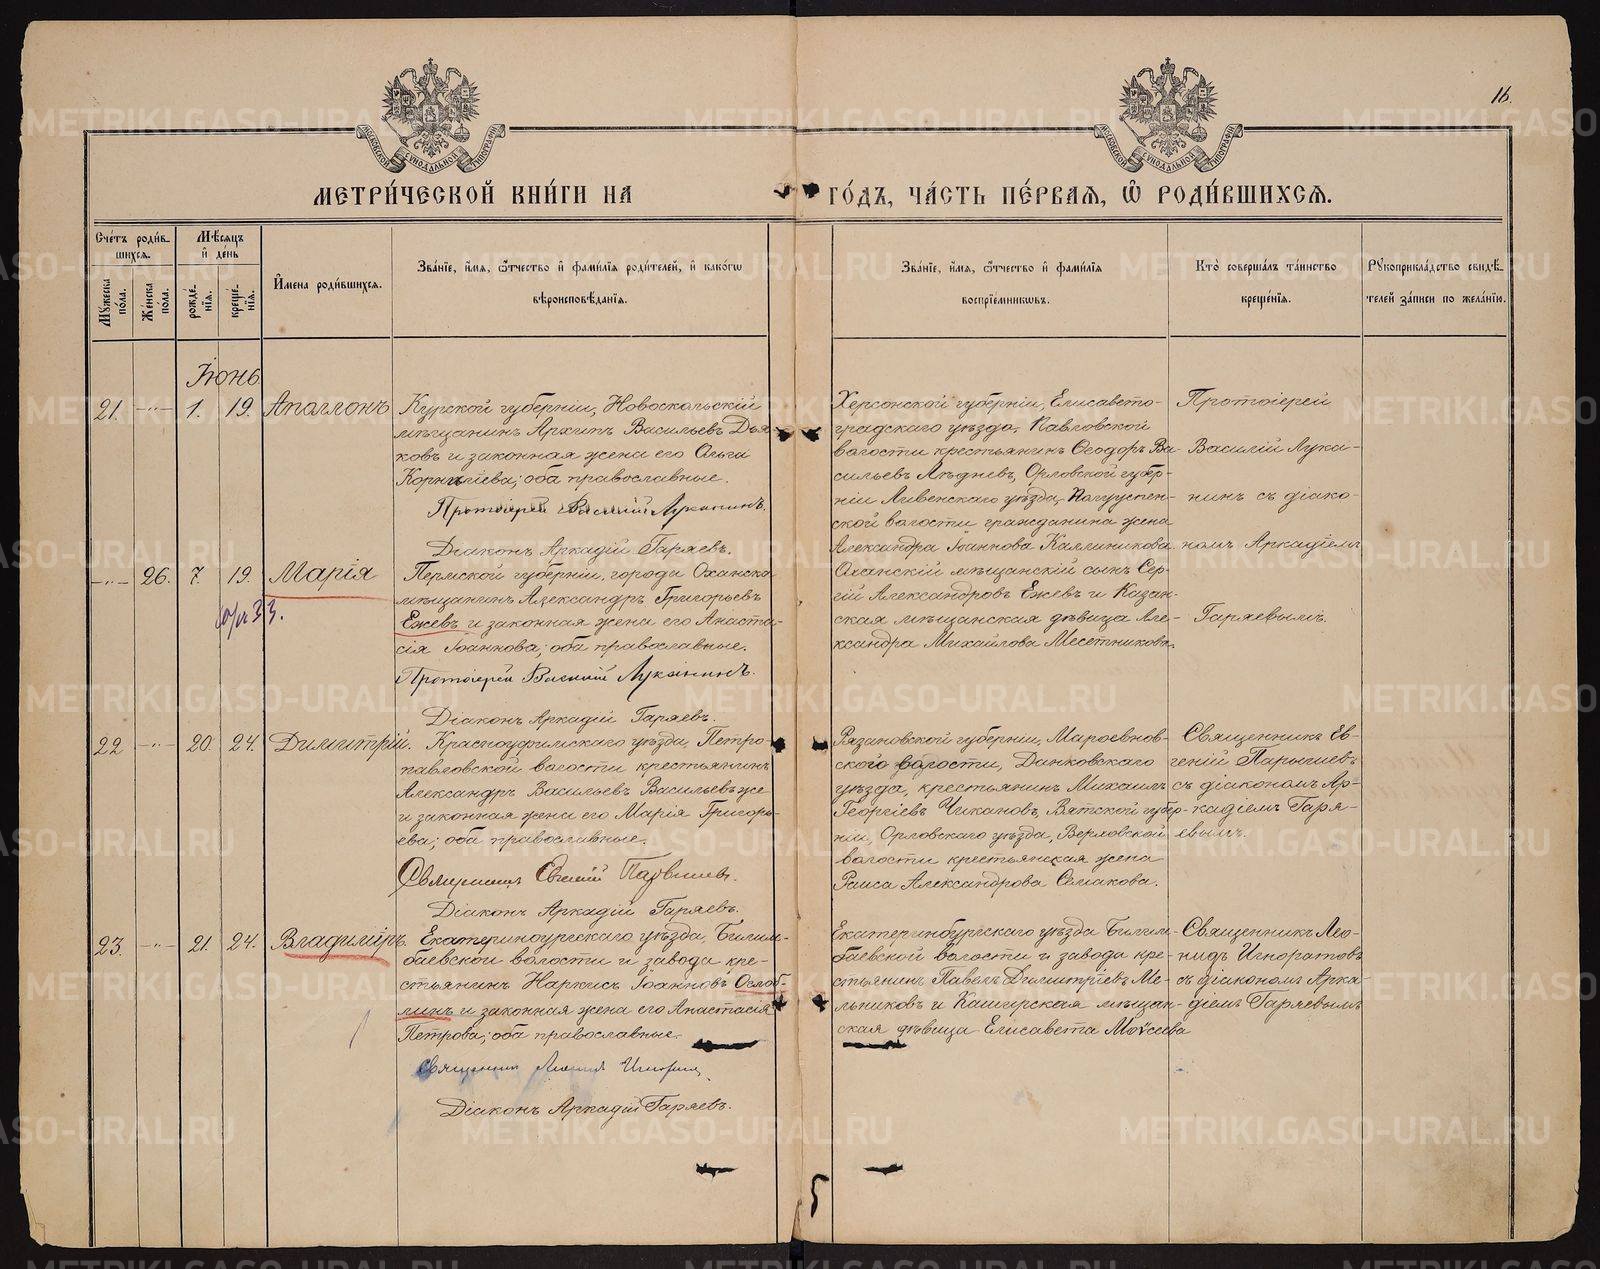 16.
МЕТРИ́ЧЕСКОЙ КНИ́ГИ НА ГО́ДЪ, ЧА́СТЬ ПЕ́РВАЯ, Ѡ РОДИ́ВШИХСЯ.
Сче́тъ роди́вшихся.
Му́жеска по́ла.
Же́нска по́ла.
Мѣ́сяцъ и҆ де́нь
рожде́нїѧ.
креще́нїѧ.
И҆мена роди́вшихся.
Зва́нїе, и҆́мѧ, ѻ҆́тчество и҆ фами́лїѧ роди́телей, и҆ како́гѡ
вѣроисповѣ́данїѧ.
Зва́нїе, и҆́мѧ, ѻ҆́тчество и҆ фами́лїѧ
воспрїе́мникѡвъ.
Кто̀ соверша́лъ та́инство
креще́нїѧ.
Рꙋкоприкла́дство свидѣ́-
телей за́писи по жела́нїю.
Іюнь
21. -"- 1. 19. Аполлонъ
Курской губерніи, Новоскольскій
мѣщанинъ Архипъ Васильевъ Дья
ковъ и законная жена его Ольга
Корнильева; оба православные.
Протоіерей Василій Луканинъ.
Діаконъ Аркадій Гаряевъ.
Херсонской губерніи, Елисавето-
градскаго уѣзда, Павловской
волости крестьянинъ Ѳеодоръ Ва-
сильевъ Лѣдневъ, Орловской губер-
ніи Ливенскаго уѣзда,
ской волости гражданина жена
Александра Іоаннова Каллиникова
Протоіерей
Василій Лука-
нинъ съ діако-
номъ Аркадіемъ
Гаряевымъ.
-"- 26. 7. 19. Марія
Пермской губерніи, города Оханска
мѣщанинъ Александръ Григорьевъ
Ежевъ и законная жена его Анаста-
сія Іоаннова; оба православные.
Протоіерей Василій Луканинъ.
Діаконъ Аркадій Гаряевъ.
Оханскій мѣщанскій сынъ Сер-
гій Александровъ Ежевъ и Казан-
ская мѣщанская дѣвица Але-
ксандра Михайлова Месетникова.
22 -"- 20. 24. Димитрій.
Красноуфимскаго уѣзда, Петро-
павловской волости крестьянинъ
Александръ Васильевъ Васильевъ же
и законная жена его Марія Григорь-
ева; оба православные.
Священникъ Евгеній Парышевъ.
Діаконъ Аркадій Гаряевъ.
Рязановской губерніи,
ской волости, Данковскаго
уѣзда, крестьянинъ Михаилъ
Георгіевъ Чикановъ, Вятской губер-
ніи, Орловскаго уѣзда, Верховской
волости крестьянская жена
Раиса Александрова Семакова.
Священникъ Ев-
геній Парышевъ
съ діакономъ Ар-
кадіемъ Гаря-
евымъ.
23. -"- 21. 24. Владиміръ.
Екатеринбургскаго уѣзда, Билим-
баевской волости и завода кре-
стьянинъ Наркисъ Іоанновъ Ослоп-
линъ и законная жена его Анастасія
Петрова; оба православные.
Священникъ Леонидъ Игноратовъ
Діаконъ Аркадій Гаряевъ.
Екатеринбургскаго уѣзда Билим-
баевской волости и завода кре-
стьянинъ Павелъ Димитріевъ Ме-
льниковъ и Каширская мѣщан-
ская дѣвица Елисавета Моѵсеева
Священникъ Лео-
нидъ Игноратовъ
съ діакономъ Арка-
діемъ Гаряевымъ
METRIKI.GASO-URAL.RU